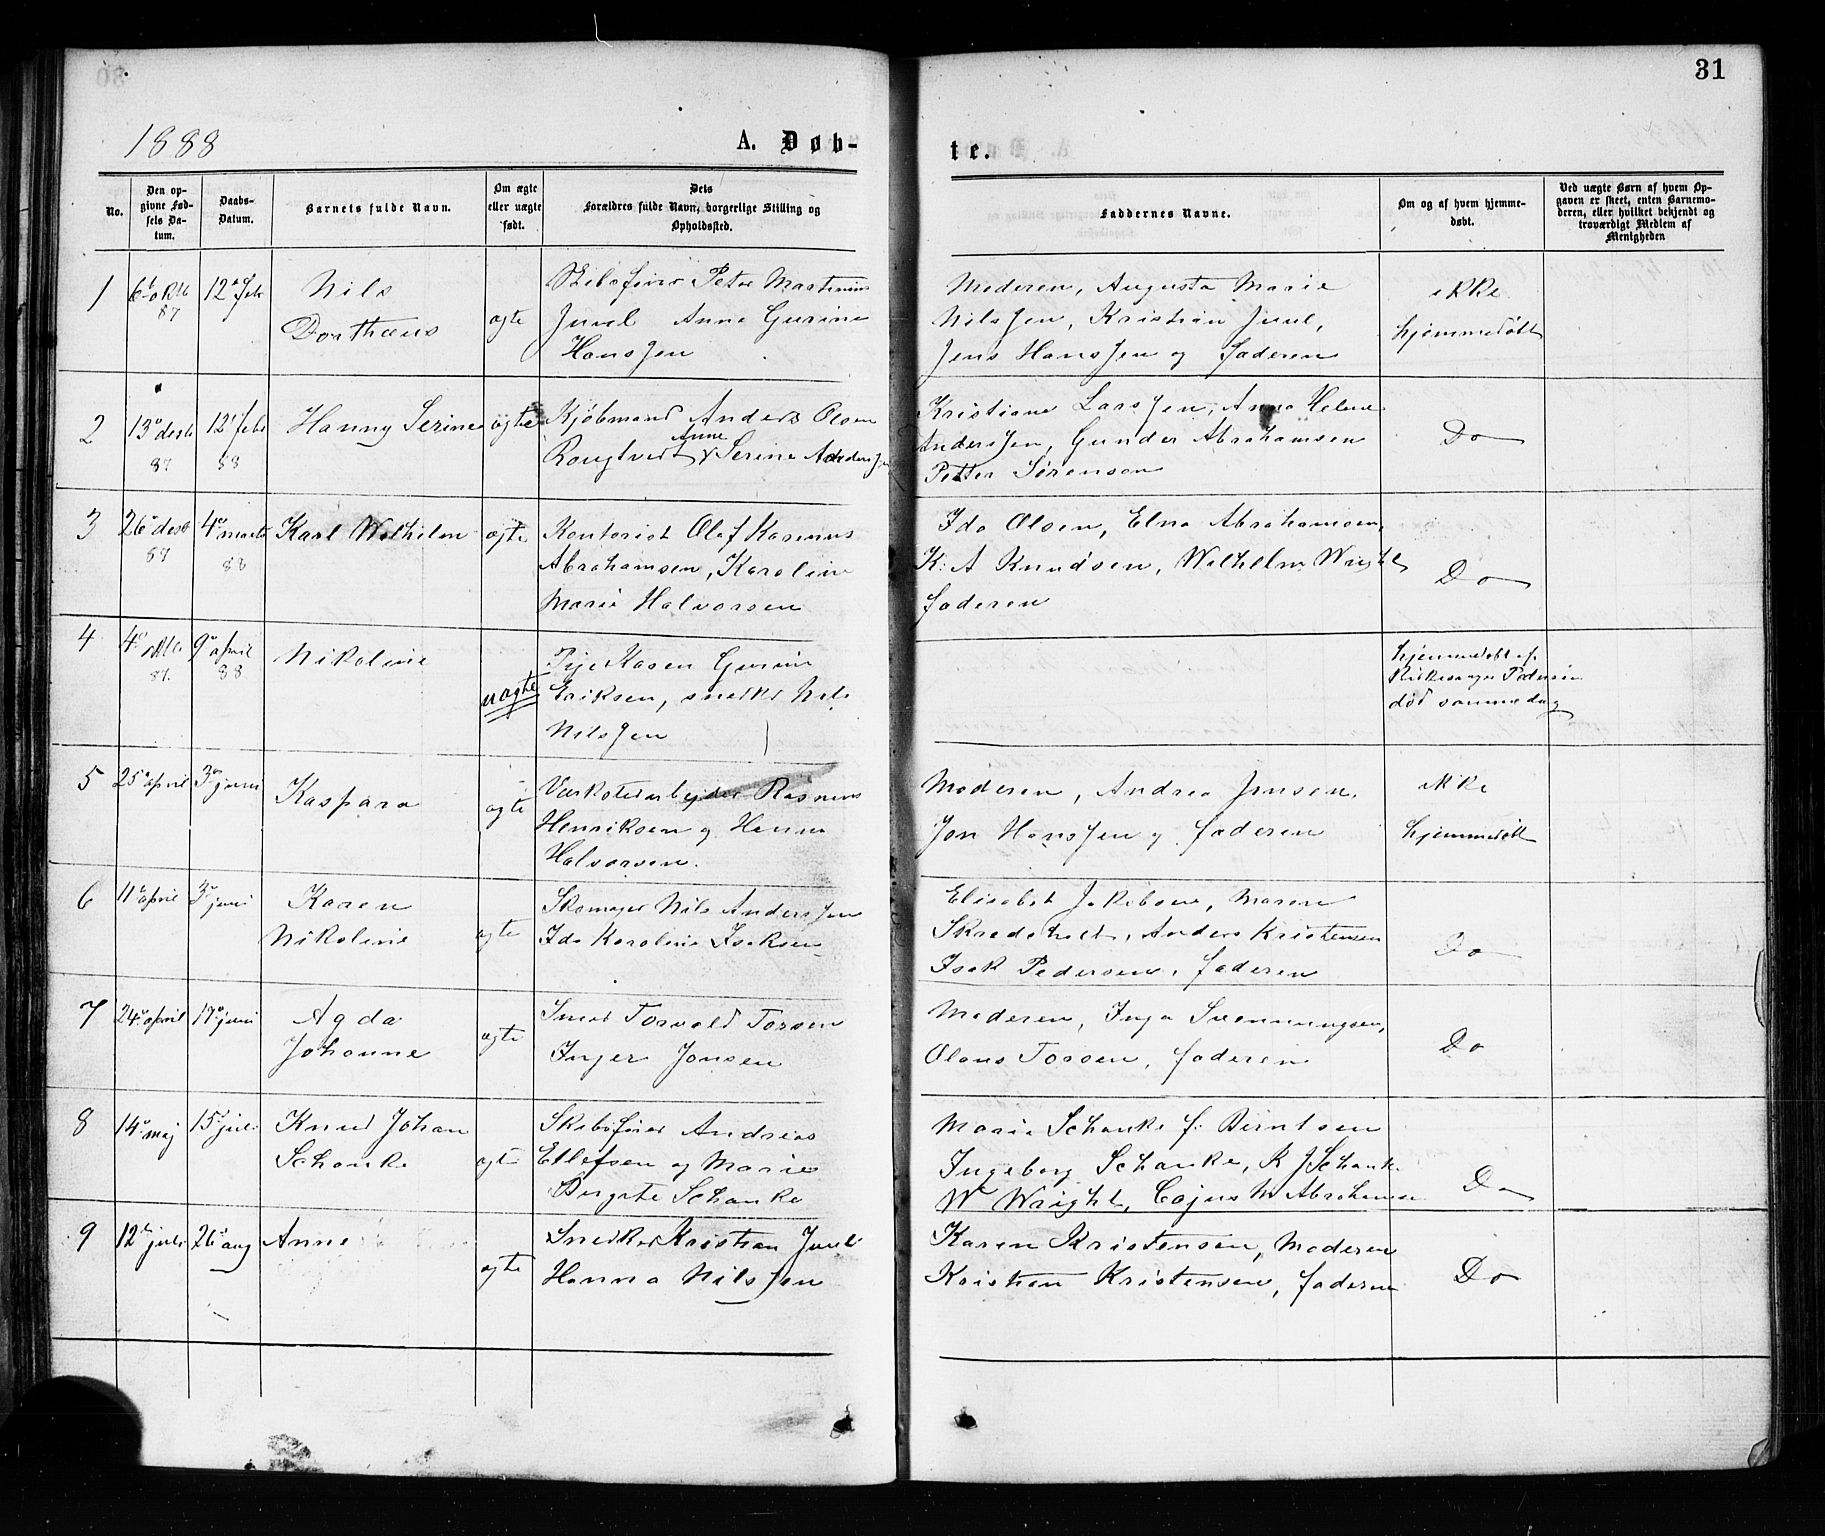 31
1888
A. Døb-
te.
No.
Den op-
givne Fød-
sels Da-
tum.
Daabs-
Datum.
Barnets fulde Navn.
Om ægte
eller uægte
født.
Dets
Forældres fulde Navn, borgerlige Stilling og
Opholdssted.
Faddernes Navne.
Om og af hvem hjemme-
døbt.
Ved uægte Børn af hvem Op-
gaven er skeet, enten Barnemo-
deren, eller hvilket bekjendt og
troværdigt Medlem af
Menigheden
1
87
12 feb
Nils
Dorthæus
ægte
Skibsfører Peter Martinius
Juul Anne Gurine
Hanssen
Moderen, Augusta Marie
Nilssen, Kristian Juul,
Jens Hanssen og faderen
ikke
hjemmedøbt
2
13 desb
87
12 feb
88
Hanny Serine
ægte
Kjøbmand Anders Olsen
Anne
Rougtvedt Serine Anderssen
Kristiane Larssen, Anna Helene
Anderssen, Gunder Abrahamsen
Petter Sørensen
Do
3
26 desb
87
4 marts
88
Karl Wilhelm
ægte
Kontorist Olaf Rasmus
Abrahamsen, Karoline
Marie Halvorsen
Ida Olsen, Elna Abrahamsen,
K. A Knudsen, Wilhelm Wright
faderen
Do
4
4
87.
9 april
88
Nikoline
uægte
Pige Karen Gurine
Eriksen, snedker Nils
Nilssen
hjemmedøbt af
Kirkesanger Pedersen
død samme dag
5
25 april
3 juni
Kaspara
ægte
Værkstedarbejder Rasmus
Henriksen og Hanna
Halvorsen.
Moderen, Andrea Jensen,
Jon Hanssen og faderen
ikke
hjemmedøbt
6
11 april
3 juni
Karen
Nikoline
ægte
Skomager Nils Anderssen
Ida Karoline Isaksen
Elisabet Jakobsen, Maren
Skradeholt, Anders Kristensen
Isak Pedersen, faderen
Do
7
24 april
17 juni
Agda
Johanne
ægte
Smed Torvald Torsen
Inger Jonsen
Moderen, Inga Svenningsen,
Olaus Torsen, faderen
Do
8
14 maj
15 juli
Knud Johan
Schanke
ægte
Skibsfører Andreas
Ellefsen og Marie
Birgite Schanke
Marie Schanke f. Berntsen
Ingeborg Schanke, K J Schanke
W Wright, Cajus M Abrahamsen
Do
9
12 juli
26 aug
Anne
ægte
Snedker Kristian Juul
Hanna Nilssen
Karen Kristensen, Moderen
Kristian Kristensen, faderen
Do